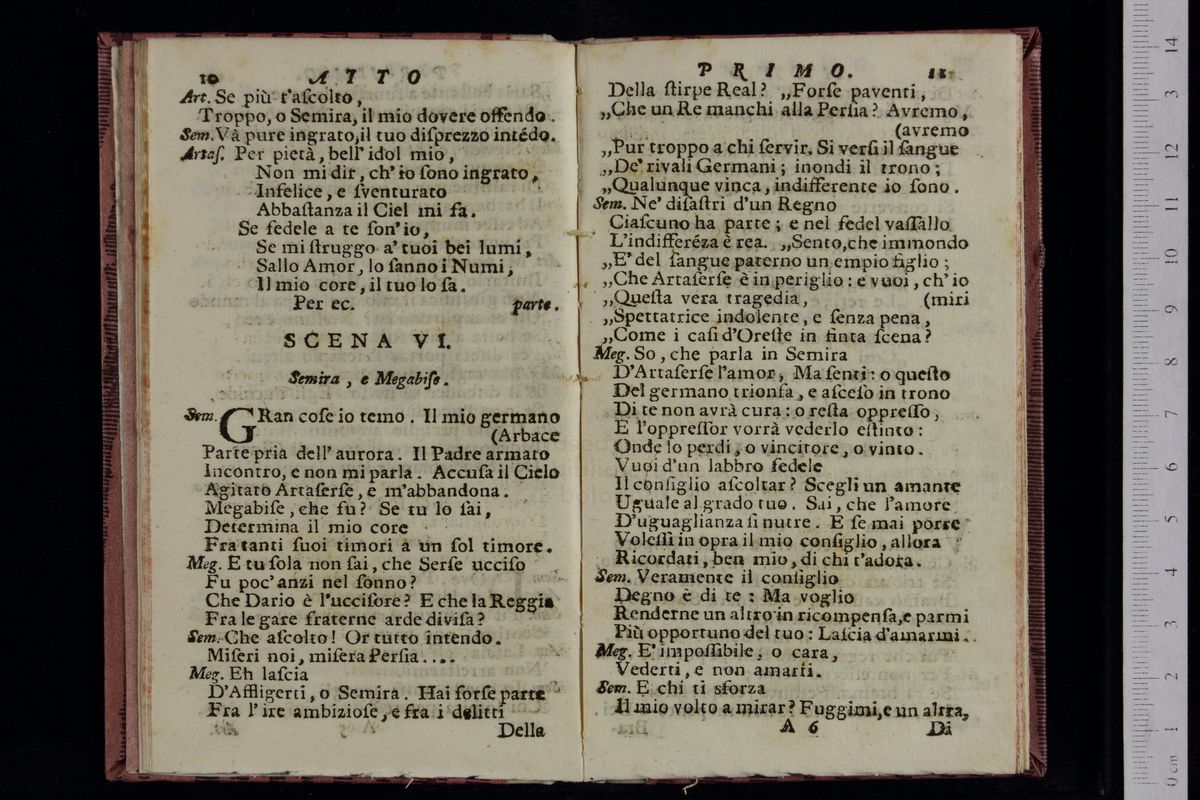 10 ATTO
Art. Se più t'aſcolto,
Troppo, o Semira, il mio dovere offendo.
Sem. Và pure ingrato, il tuo diſprezzo intédo.
Artaſ. Per pietà, bell' idol mio,
Non mi dir, ch' io ſono ingrato,
Infelice, e ſventurato
Abbaſtanza il Ciel mi fa.
Se fedele a te ſon' io,
Se mi ſtruggo a' tuoi bei lumi,
Sallo Amor, lo ſanno i Numi,
Il mio core, il tuo lo ſa.
Per ec. parte.
SCENA VI.
Semira, e Megabiſe.
Sem. GRan coſe io temo. Il mio germano
(Arbace
Parte pria dell' aurora. Il Padre armato
Incontro, e non mi parla. Accuſa il Cielo
Agitato Artaſerſe, e m'abbandona.
Megabiſe, che fu? Se tu lo ſai,
Determina il mio core
Fra tanti ſuoi timori a un ſol timore.
Meg. E tu ſola non ſai, che Serſe ucciſo
Fu poc' anzi nel ſonno?
Che Dario è l'ucciſore? E che la Reggia
Fra le gare fraterne arde diviſa?
Sem. Che aſcolto! Or tutto intendo.
Miſeri noi, miſera Perſia....
Meg. Eh laſcia
D'Affligerti, o Semira. Hai forſe parte
Fra l' ire ambizioſe, e fra i delitti
Della
PRIMO. 11
Della ſtirpe Real? „Forſe paventi,
„Che un Re manchi alla Perſia? Avremo,
(avremo
„Pur troppo a chi ſervir. Si verſi il ſangue
„De' rivali Germani; inondi il trono;
„Qualunque vinca, indifferente io ſono.
Sem. Ne' diſaſtri d'un Regno
Ciaſcuno ha parte; e nel fedel vaſſallo
L'indifferéza è rea. „Sento, che immondo
„E' del ſangue paterno un empio figlio;
„Che Artaſerſe è in periglio: e vuoi, ch' io
„Queſta vera tragedia, (miri
„Spettatrice indolente, e ſenza pena,
„Come i caſi d'Oreſte in finta ſcena?
Meg. So, che parla in Semira
D'Artaſerſe l'amor, Ma ſenti: o queſto
Del germano trionfa, e aſceſo in trono
Di te non avrà cura: o reſta oppreſſo,
E l'oppreſſor vorrà vederlo eſtinto:
Onde lo perdi, o vincitore, o vinto.
Vuoi d'un labbro fedele
Il conſiglio aſcoltar? Scegli un amante
Uguale al grado tuo. Sai, che l'amore
D'uguaglianza ſi nutre. E ſe mai porre
Voleſſi in opra il mio conſiglio, allora
Ricordati, ben mio, di chi t'adora.
Sem. Veramente il conſiglio
Degno è di te: Ma voglio
Renderne un altro in ricompenſa, e parmi
Più opportuno del tuo: Laſcia d'amarmi.
Meg. E' impoſſibile, o cara,
Vederti, e non amarti.
Sem. E chi ti sforza
Il mio volto a mirar? Fuggimi, e un altra,
A 6 Di